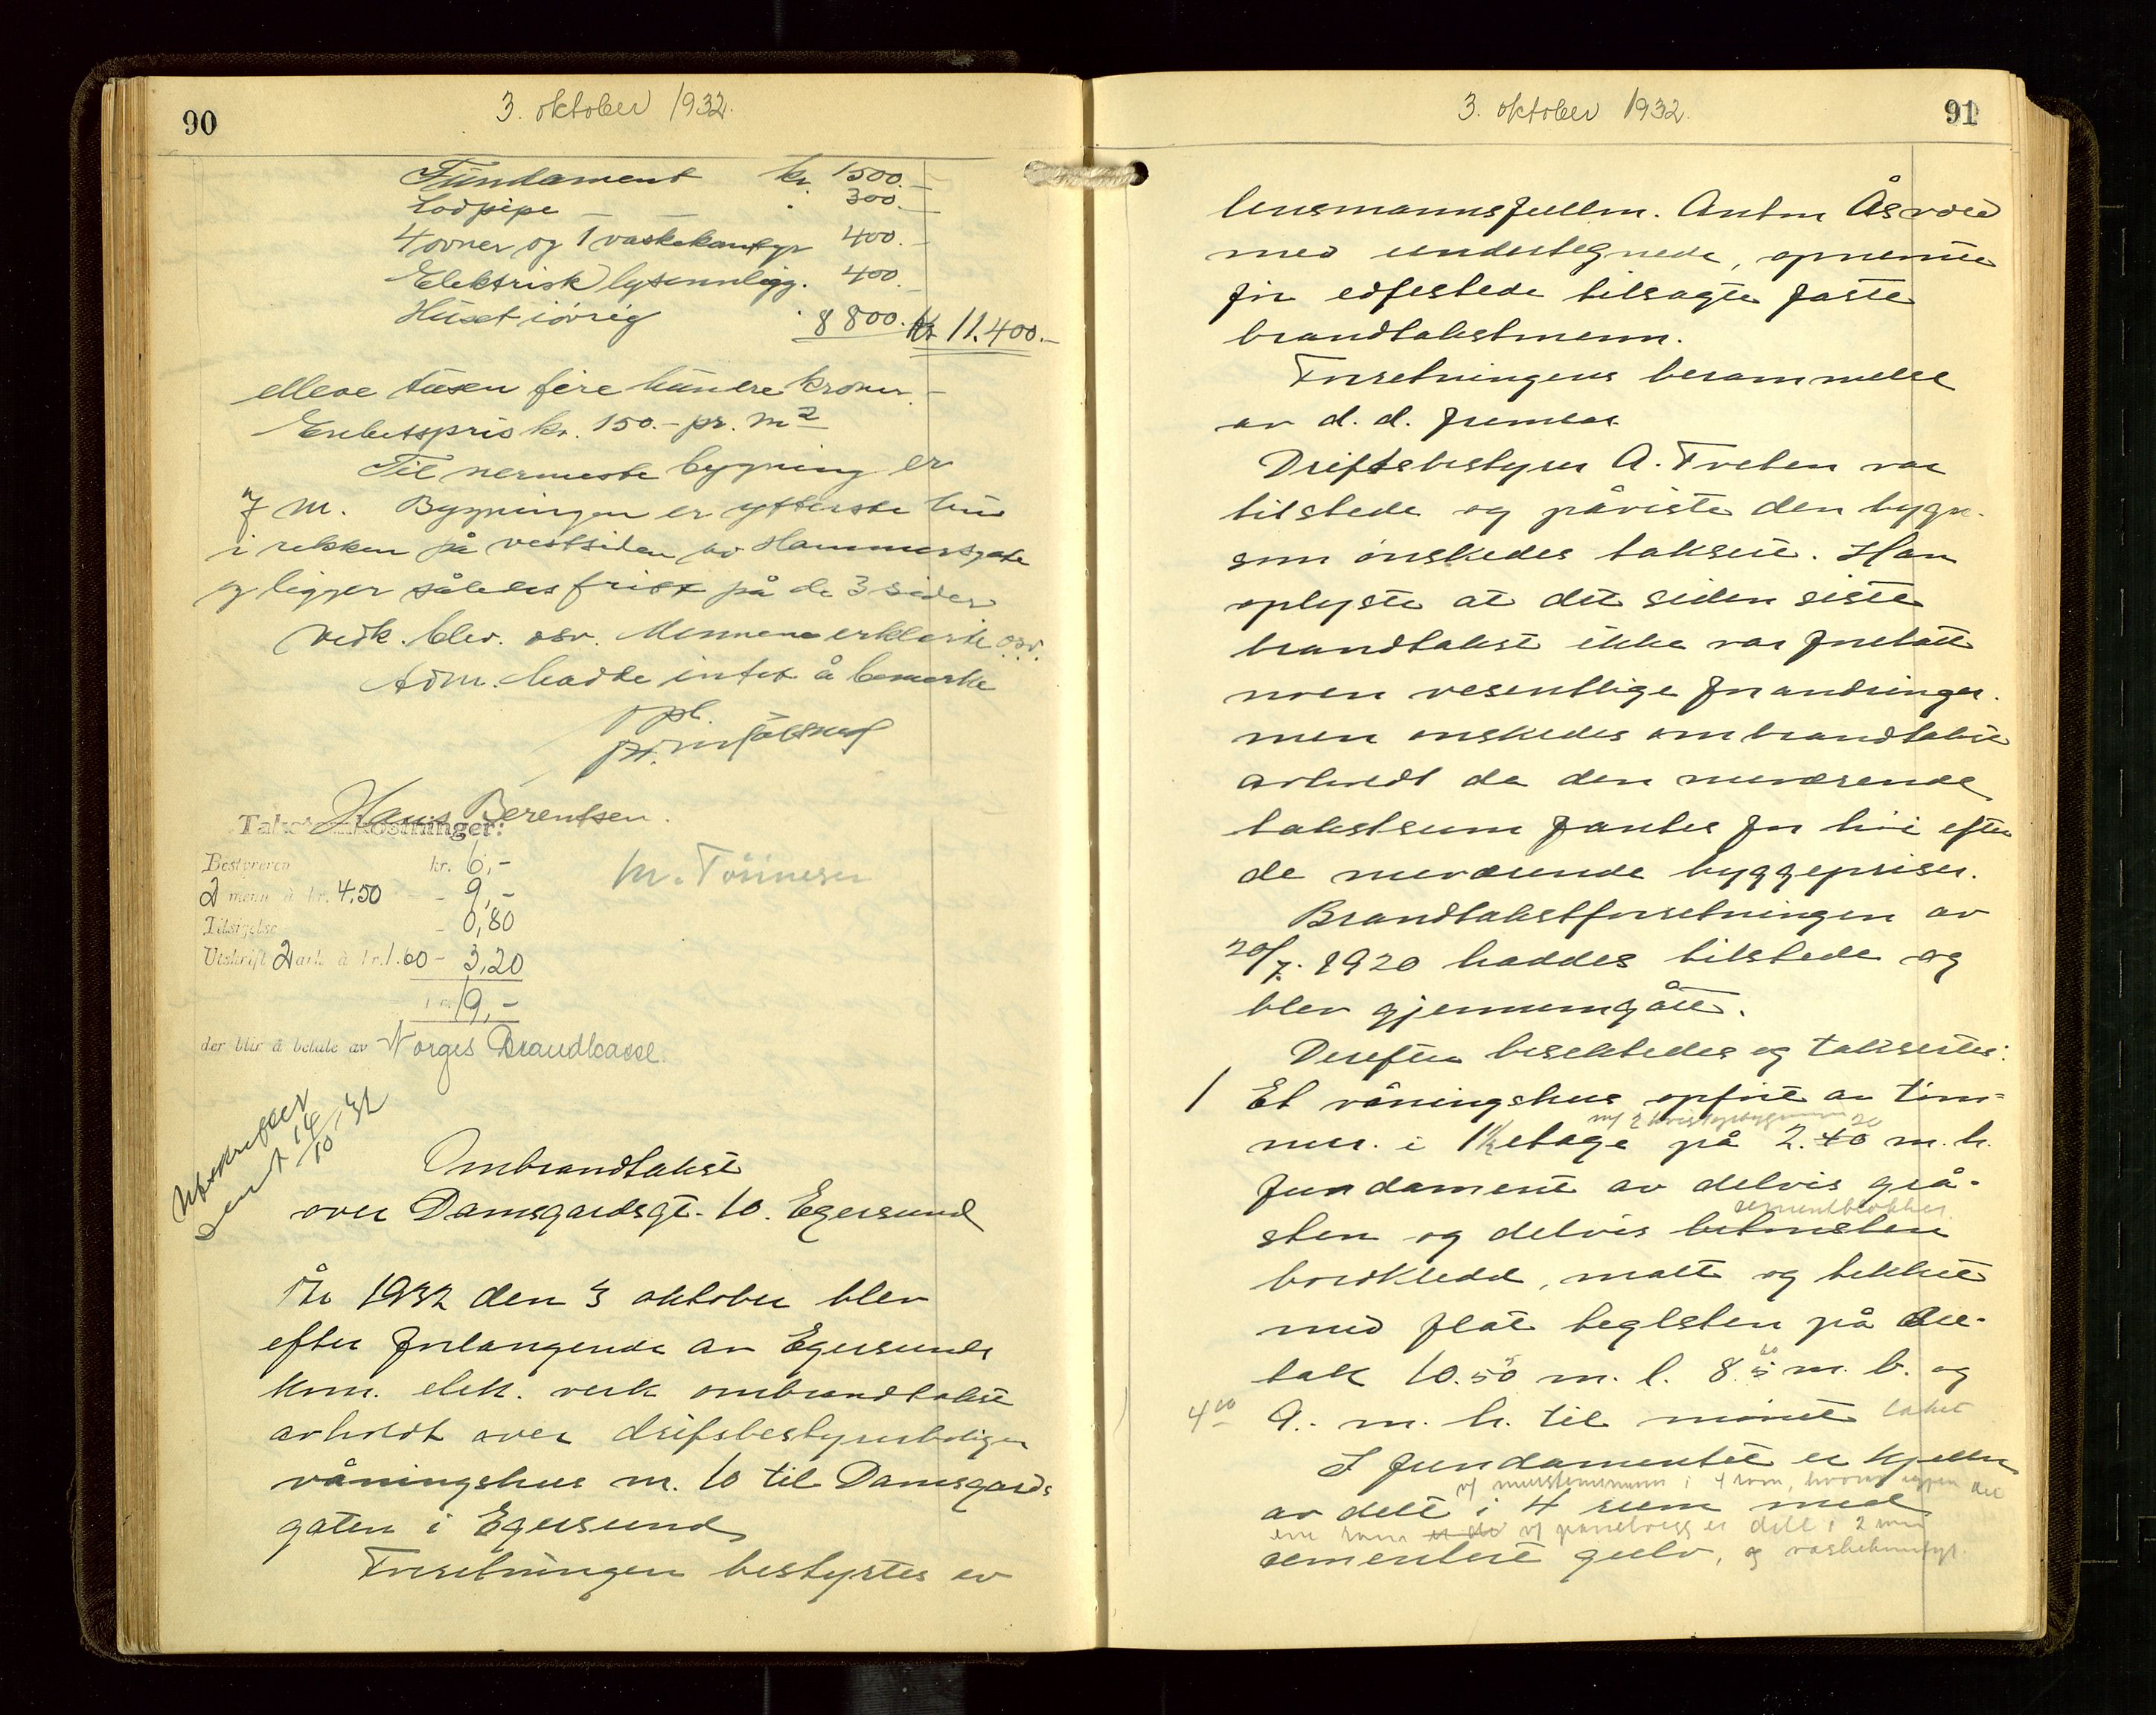 90
3. oktober 1932.
Fundament kr. 1500.-
Lodpipe - - 300.-
4 ovner og 1 vaskekantyr 400.-
Elektrisk lysannlegg. 400.-
Huset iøvrig 8 800. Kr 11.400.-
elleve tusen fire hundre kroner.-
Enhetspris kr. 150.- pr. m2
Til nermeste bygning er
7 m. Bygningen er ytterste hus
i rekken på vestsiden av Hammersgate
og ligger således fritt på de 3 sider
Vedk. blev. osv. Mennene erklærte osv.
Adm. hadde intet å bemerke
opl.
Hans Berentsen.
M. Tønnesen
Takstomkostninger:
Bestyreren kr. 6,-
2 menn à kr. 4.50 - - 9,-
Tilsigelse - 0,80
Utskrift 2 ark à kr. 1.60 - 3,20
kr. 19,-
der blir å betale av Norges Brandkasse.
Utskriften
sent 14/10 32
Ombrandtakst
over Damsgardsgt. 10. Egersund
År 1932 den 3 oktober blev
efter forlangende av Egersunds
kom. elek. verk ombrandtakst
avholdt over driftsbestyrerboligen
våningshus nr. 10 til Damsgards
gaten i Egersund
Forretningen bestyrtes av
3. oktober 1932.
91
lensmannsfullm. Anton Åsvold
med undertegnede, opnevnte
for edfestede tilsagte faste
brandtakstmenn.
Forretningens berammelse
av d. d. fremlas
Driftsbestyrer A. Tveten var
tilstede og påviste den bygn.
som ønskedes taksert. Han
oplyste at det siden siste
brandtakst ikke var foretatt
noen vesentlige forandringer.
men ønskedes ombrandtakst
avholdt da den nuværende
takstsum fantes for høi efter
de nuværende byggepriser.
Brandtakstforretningen av
20/7. 1920 haddes tilstede og
blev gjennemgått.
Derefter besiktedes og taksertes:
1 Et våningshus opført av tøm-
m/ 2 20
mer. i 1½ etage på 2.40 m. h.
fundament av delvis grå-
cementblokker
sten og delvis betonsten
bordkledd, malt og tekket
med flat teglsten på
tak 10.50 m. l. 8. m. b. og
4 00 9. m. h. til mønet taket
I fundamentet er kjeller
m/ murstensmurer i 4 rom, hvorav
av delt i 4 rum med
ene rom er de m/ panelvegg er delt i 2 rom
cementert gulv, og vaskekantyr.